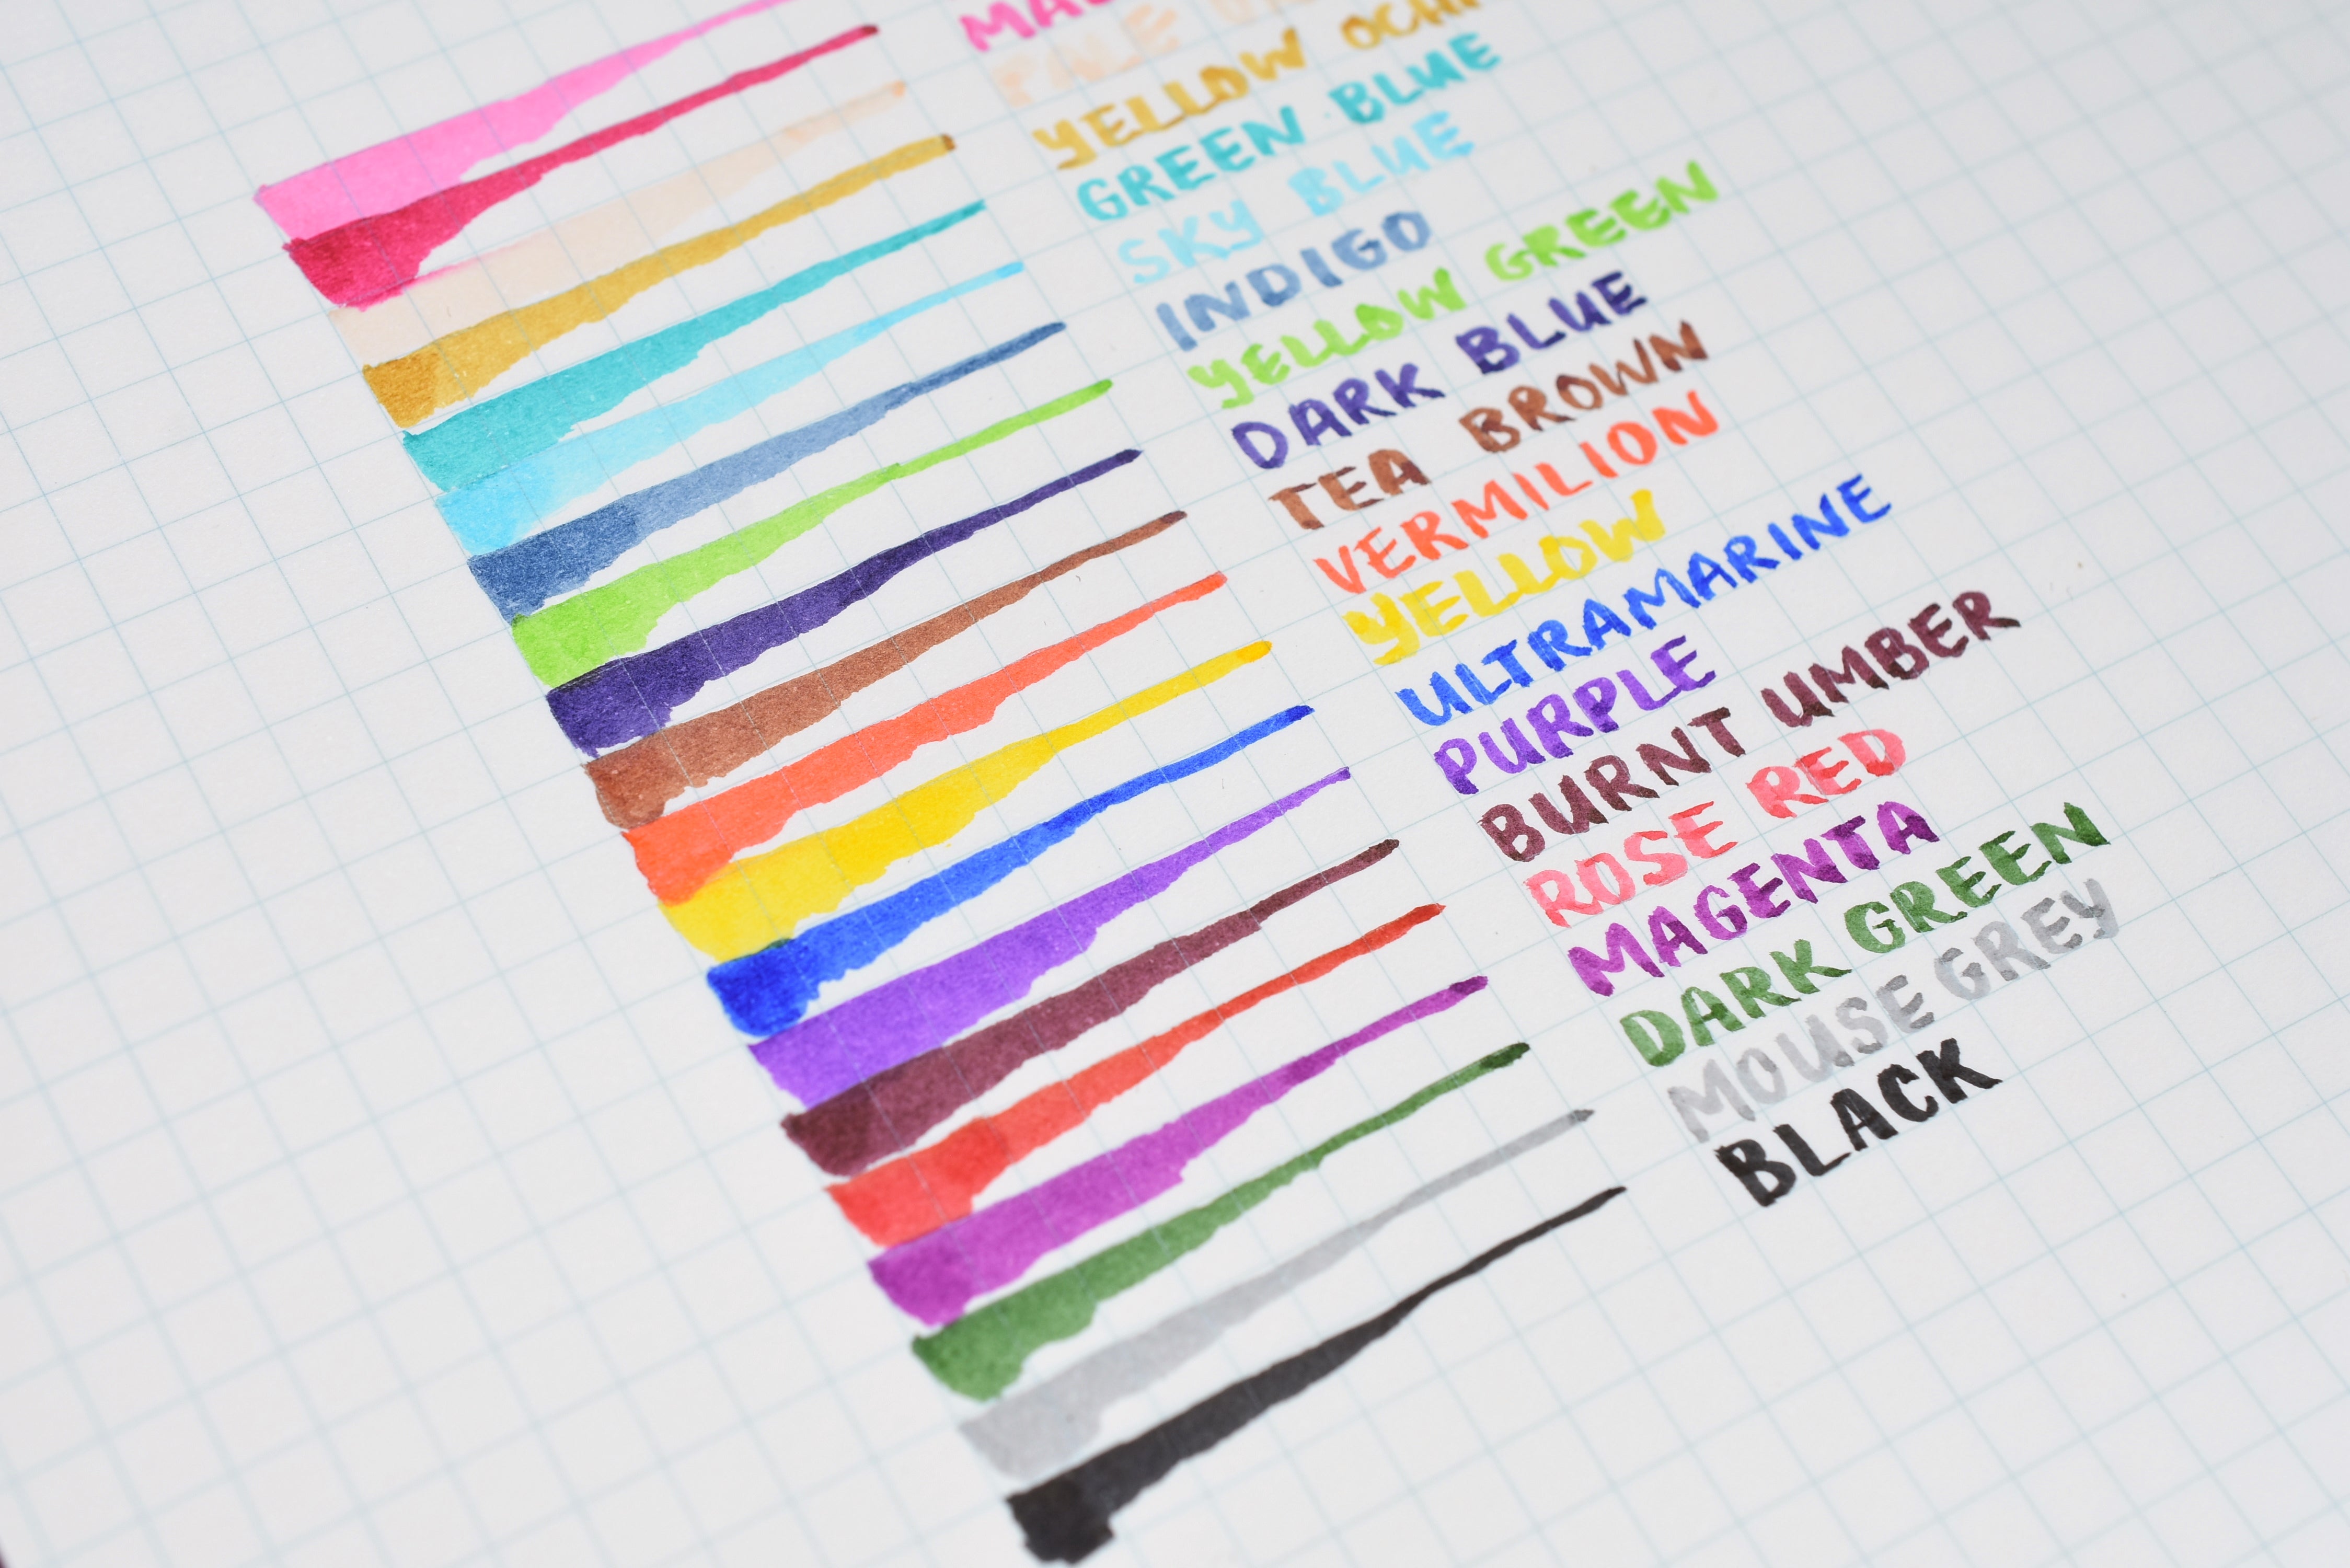 PALE
YELLOW
GREEN BLUE
SKY BLUE
INDIGO
YELLOW GREEN
DARK BLUE
TEA BROWN
VERMILION
YELLOW
ULTRAMARINE
PURPLE
BURNT UMBER
ROSE RED
MAGENTA
DARK GREEN
MOUSE GREY
BLACK